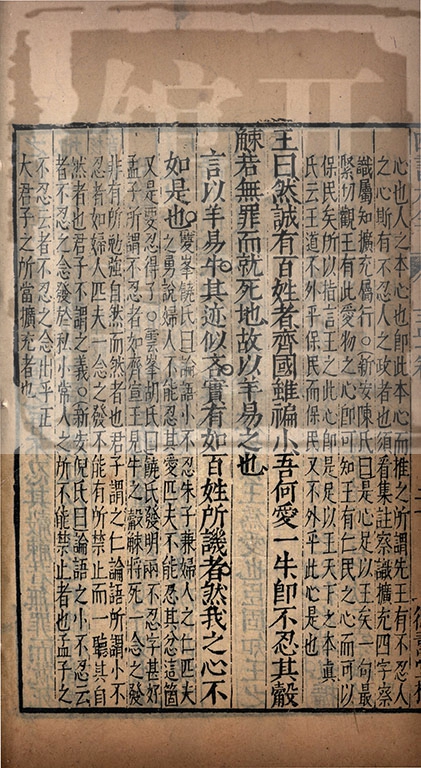 心也人之本心也卽此本心而推之所謂先王有不忍人
之心斯有不忍人之政者也須看集註察識擴充四字察
識屬知擴充屬行○新安陳氏曰是心足以王矣一句最
緊切觀王有此愛物之心卽可知王有仁民之心而可以
保民矣所以指言王之此心卽是足以王天下之本眞
氏云王道不外乎保民而保民又不外乎此心是也
王曰然誠有百姓者齊國雖褊小吾何愛一牛卽不忍其觳
觫若無罪而就死地故以羊易之也
言以羊易牛其迹似吝實有如百姓所譏者然我之心不
如是也○雙峯饒氏曰論語小不忍朱子兼婦人之仁匹夫
之勇說婦人不能忍其愛匹夫不能忍其忿這箇
又是愛忍得了○雲峯胡氏曰饒氏發明兩不忍字甚好
孟子所謂不忍者如齊宣王見牛之觳觫將死一念之發
非有所勉強自然而然者也君子謂之仁論語所謂小不
忍者如婦人匹夫一念之發不能有所禁止而一聽其自
然者也君子不謂之義○新安倪氏曰論語之小不忍云
者不忍之念發於私小常人之所不能禁止者也孟子之
不忍云者不忍之念出乎正
大君子之所當擴充者也